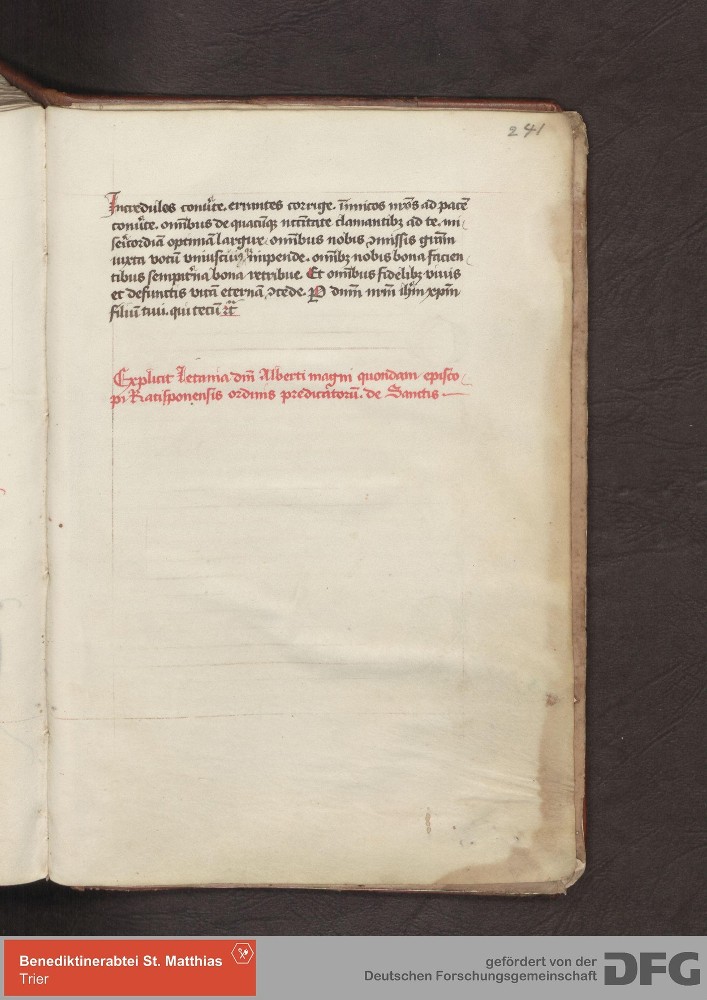 241
Incredulos conũte. errantes corrige. inĩcos nr̃os ad pacē
conũte. om̃ibus de quacūqꝫ nc̃citate clamantibꝫ ad te. mi
sẽicordiā optimā largire. omibus nobis ꝯmissis grām
iuxta votū vniuscuiꝰqꝫ impende. om̃ibꝫ nobis bona facien
tibus sempitña bona retribue. Et omibus fidelibꝫ viuis
et defunctis vitā eternā ꝯcede. P dnm̄ nr̄m ihm̄ xpm̄
filiū tuū. qui tecū ⁊c̃
Explicit letania dnī Alberti magni quondam episco
pi Ratisponensis ordinis predicatorū. de Sanctis
Benediktinerabtei St. Matthias
Trier
gefördert von der
Deutschen Forschungsgemeinschaft
DFG